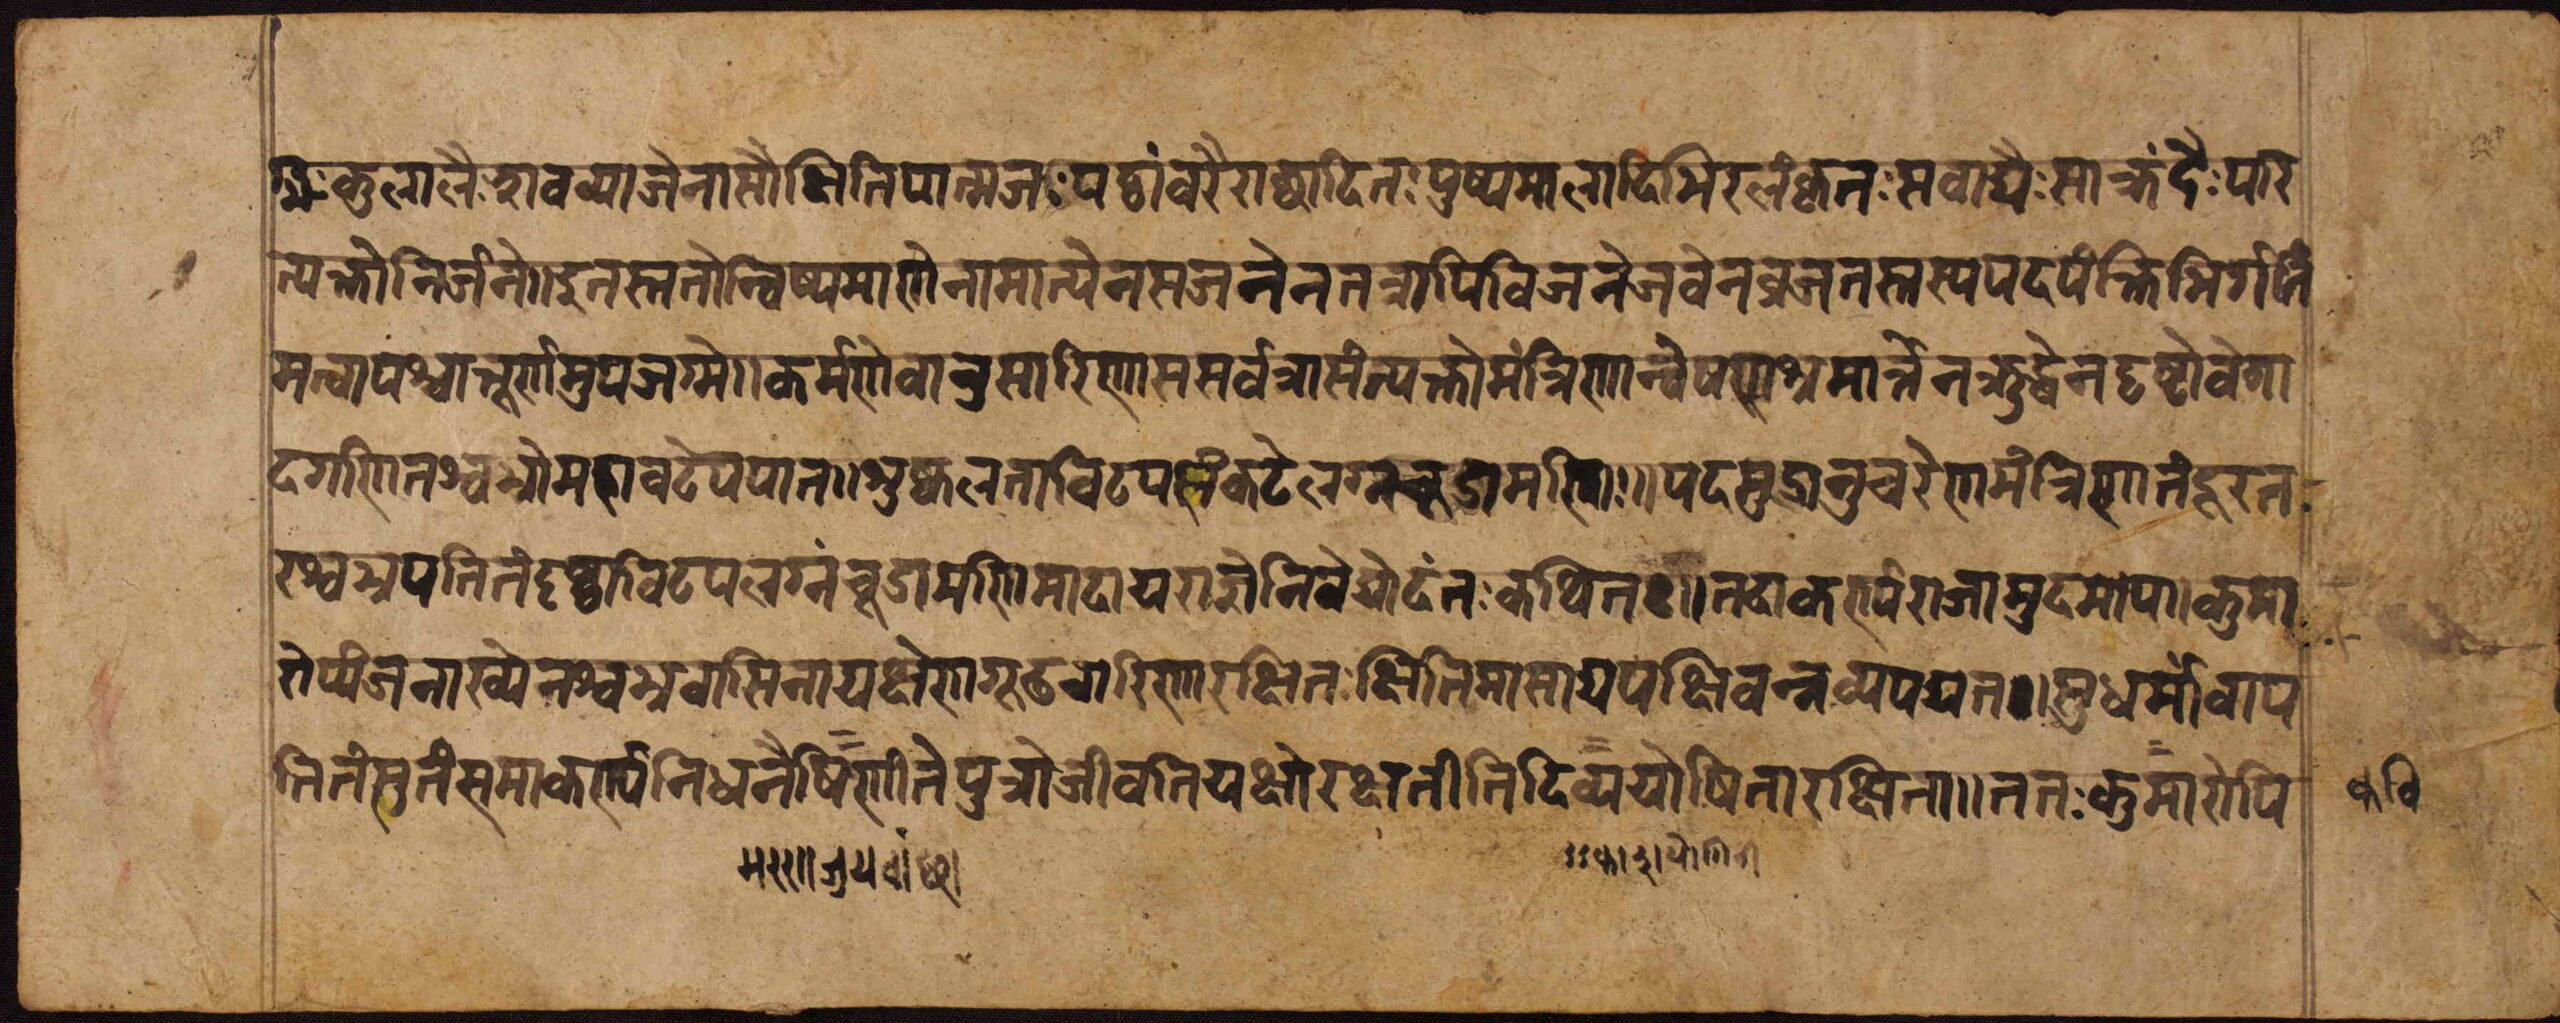 ग्भिः कुलालैः शवव्याजेनासौ क्षितिपात्मजः पट्टांवरैराछादितः पुष्पमालादिभिरलंकृतः सवाद्यैः साक्रंदैः परि
त्यक्तो निर्जने॥ इतस्ततोन्विष्यमाणेनामात्येन सजनेन तत्रापि विजने जवेन व्रजतस्तस्य पदपंक्तिभिर्गतिं
मत्वा पश्चात्तूर्णमुपजग्मे॥ कर्मणेवानुसारिणा स सर्वत्रासंत्यक्तो मंत्रिणान्वेषणाश्रमार्त्तेन क्रुद्धेन दृष्टो वेगा
दगणितश्वभ्रो महावटे पपात॥ शुष्कलताविटपसंकटे लग्नचूडामणिः॥ पदमुद्रानुचरेण मंत्रिणा तं दूरतः
रश्वभ्रपतितं दृष्ट्वा विटपलग्नं चूडामणिमादाय राज्ञे निवेद्योदंतः कथितः॥ तदाकर्ण्य राजा मुदमाप॥ कुमा
रोप्यंजनाख्येन श्वभ्रवासिना यक्षेण गूढचारिणा रक्षितः क्षितिमासाद्य पक्षिवन्न व्यपद्यत॥ सुधर्मा वाप
तितं सुतं समाकर्ण्य निधनैषिणी ते पुत्रो जीवति यक्षो रक्षतीति दिव्ययोषिता रक्षिता॥ ततः कुमारोपि
कवि